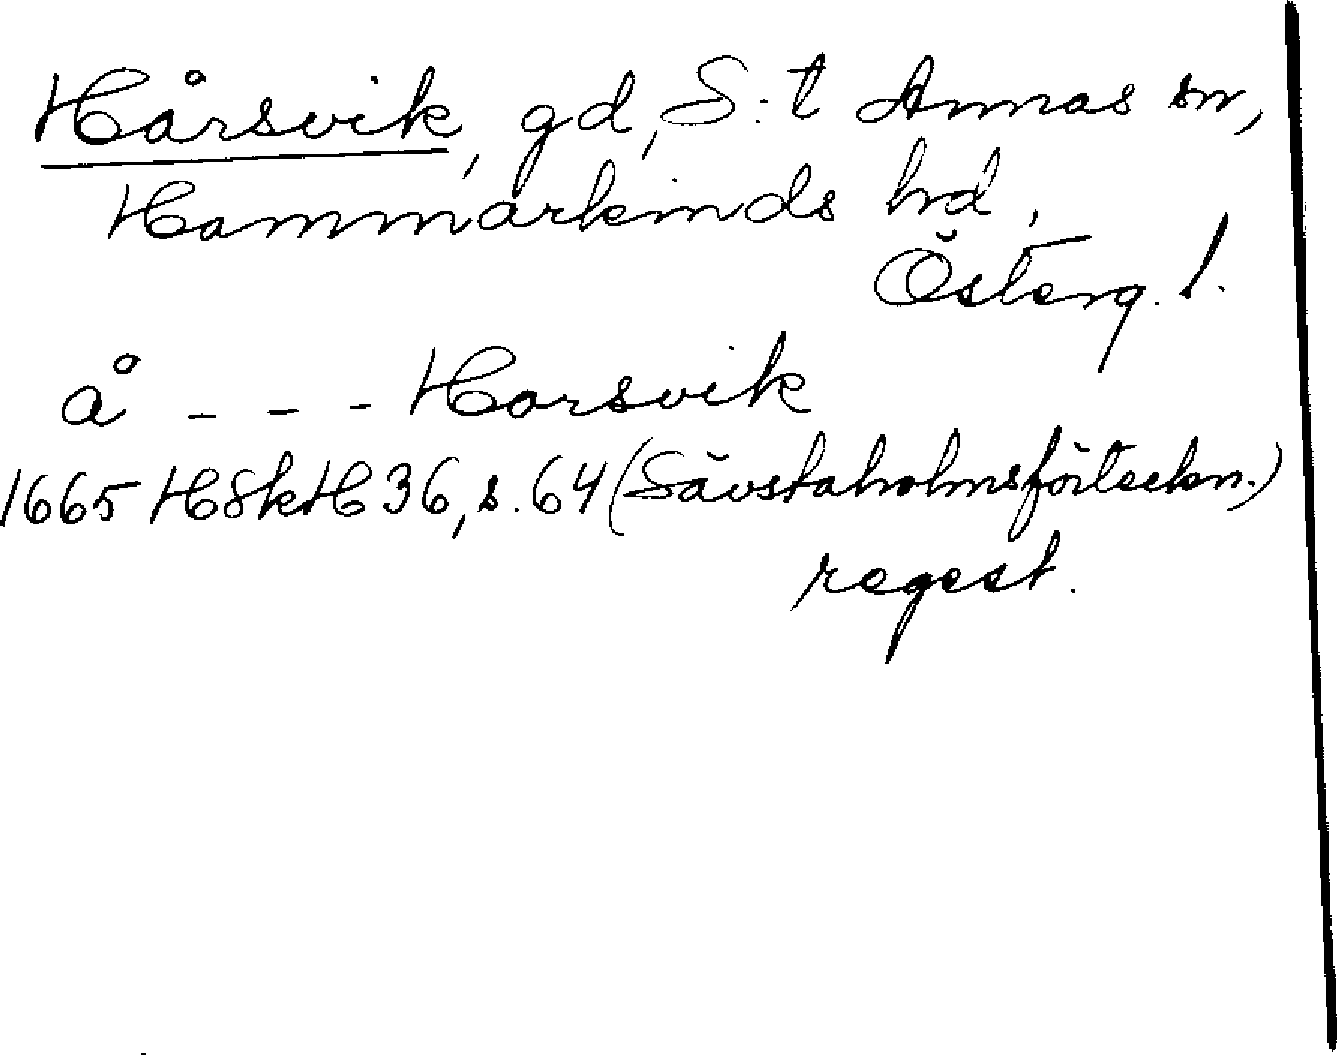 Hårsvik, gd, S:t Annas sn,
Hammarkinds hd,
Österg. l.
å - - - Horsvik
1665 HSkH 36, s. 64 (Sävstaholmsförteckn.)
regest.